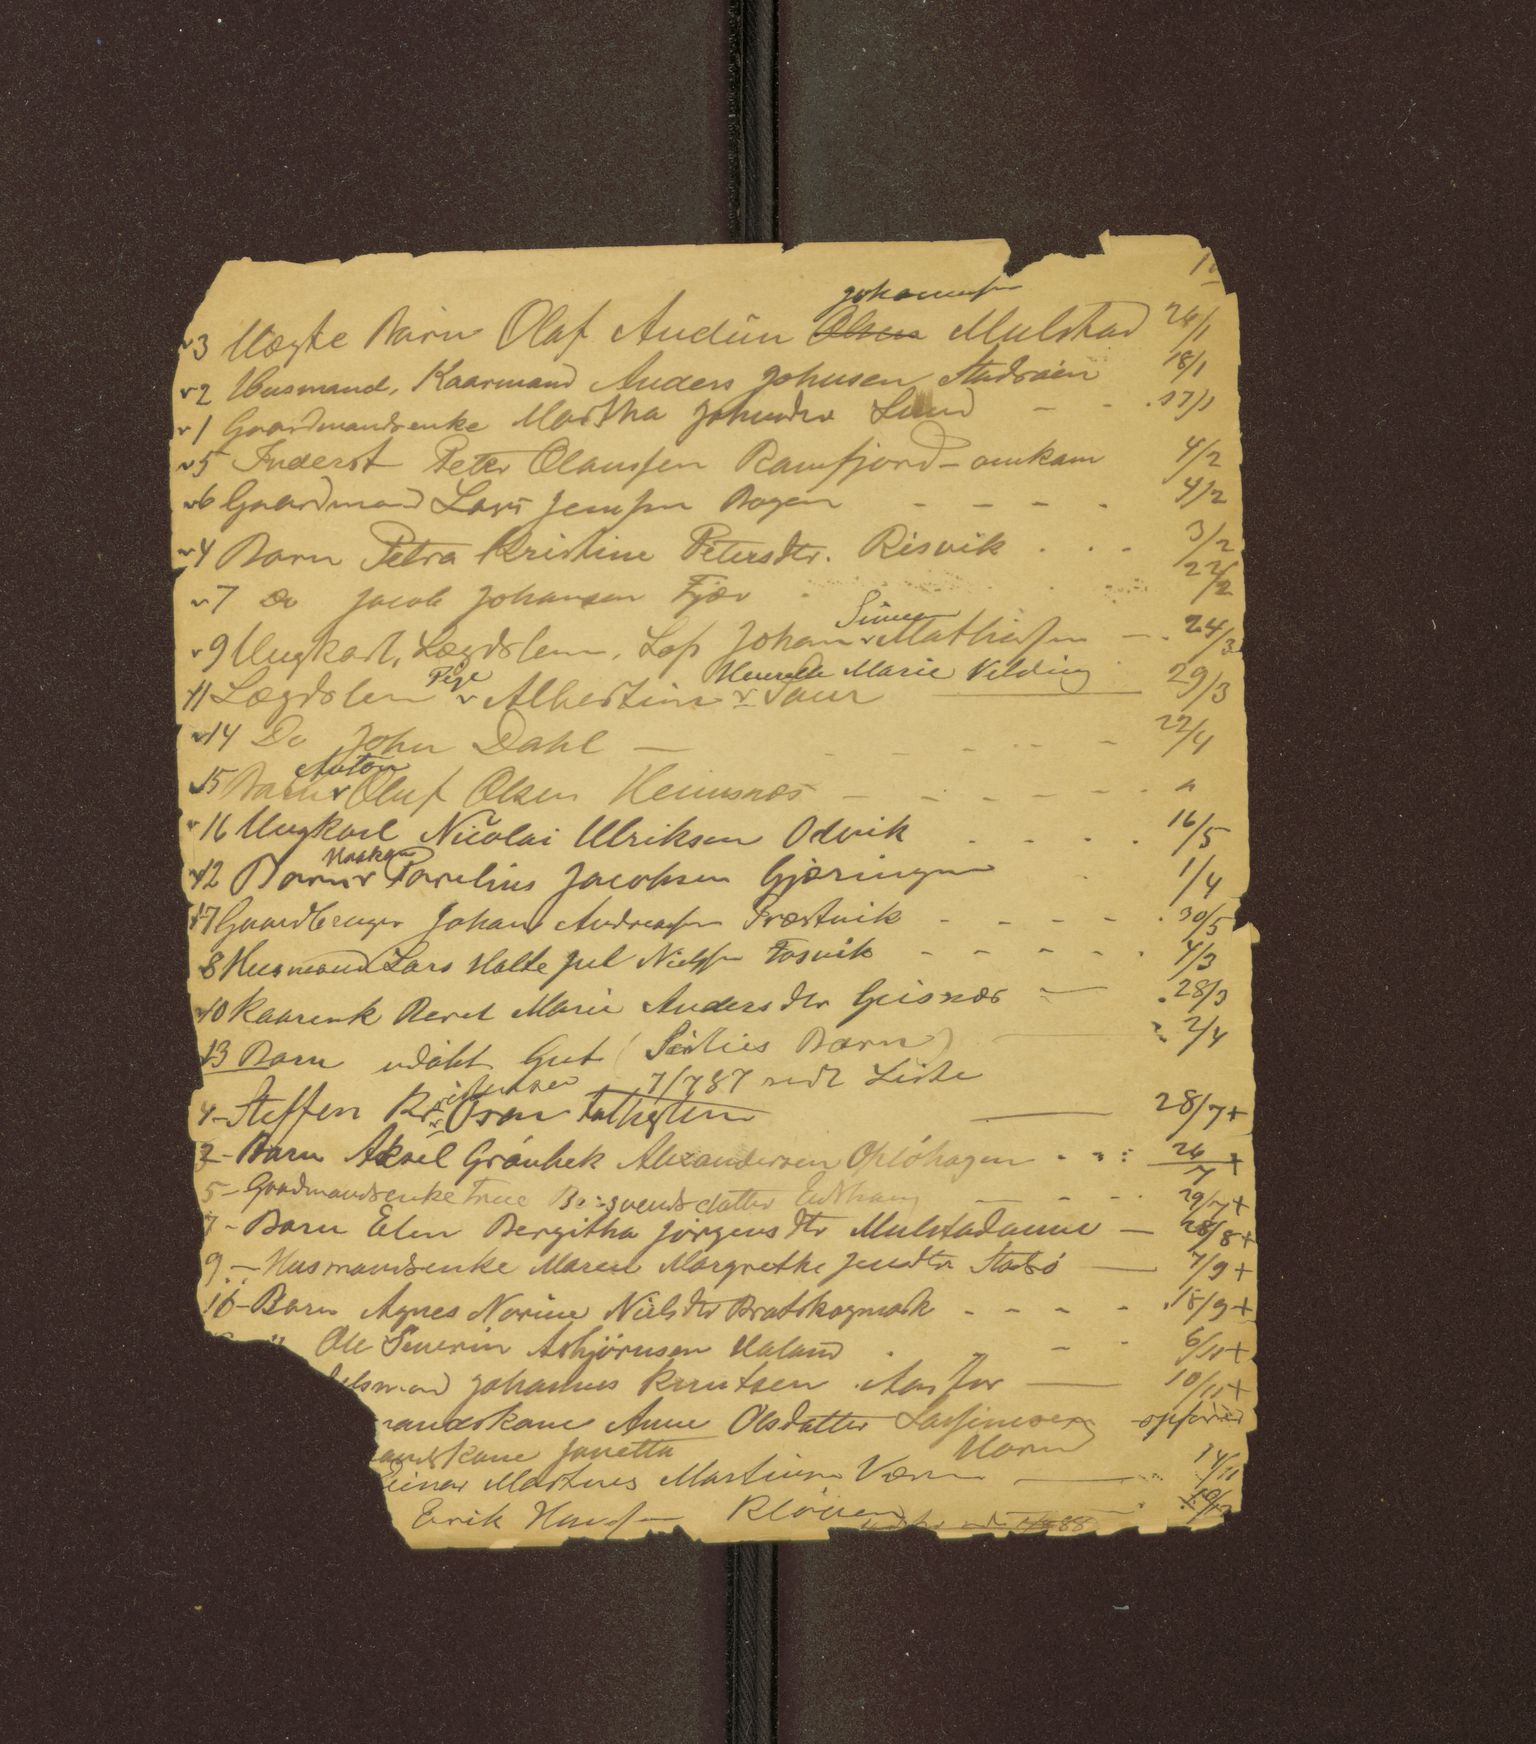 Johannessen
3 Uægte Barn Olaf Audun Olsen Mulstad 26/1
2 Husmand, Kaarmand Anders Johnsen Stadsøien 18/1
1 Gaardmandsenke Martha Johnsdtr Lund - - 17/1
5 Inderst Peter Olaussen Ramfjord - omkom 4/2
6 Gaardmand Lars Jensen Bogen - - - - 4/2
4 Barn Petra Kristine Petersdtr. Risvik . . . 3/2
7 Do Jacob Johansen Fjær 22/2
Simon
9 Ungkarl, Lægdslem, Løs Johan v Mathiassen - . 24/3
Pige Marie Vilding
11 Lægdslem v Albertine v 29/3
14 Do John Dahl - - - - - 22/4
Anton
15 Barn v Oluf Olsen Hemsnæs - - - - - - "
16 Ungkarl Nicolai Ulriksen Odvik . . . . 16/5
Haakon
12 Barn v Parelius Jacobsen Gjæringen 1/4
17 Gaardbruger Johan Andreassen Præstvik - - - - . 30/5
8 Husmand Lars Holte Jul Nielssen Fosvik - - - - . 4/3
10 Kaarenk Beret Marie Andersdtr Geisnæs - . 28/3
13 Barn udøbt Gut ( Barn) 2/4
7/7 87 sidst Liste
4 - Steffen 28/7 +
2 - Barn Aksel Grønbek Alexandersen Opløhagen . . : 26/7 +
5 - Gaardmandsenke - - - 29/7 +
7 - Barn Elen Bergitha Jørgensdtr Mulstadaune - 28/8 +
9 - Husmandsenke Maren Margrethe Jensdtr Stadsø - 7/9 +
16 - Barn Agnes Norine Nielsdtr Bratskogmark - - - - . 18/9 +
" Ole Severin Asbjørnsen Haland . - - - 6/11 +
Johannes Knutsen Aarfor - 10/11 +
mandskone Anne Olsdatter opført
andskone Janetta Horn
Einar Martinus Martinsen Værn - 14/11
Erik Hansen Kløven